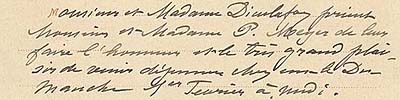 Monsieur et Madame Dieulafoy prient
Monsieur et Madame P. Meyer de leur
faire l'honneur et le très grand plai-
sir de venir déjeuner chez eux le Di-
manche 1er Fevrier à midi.